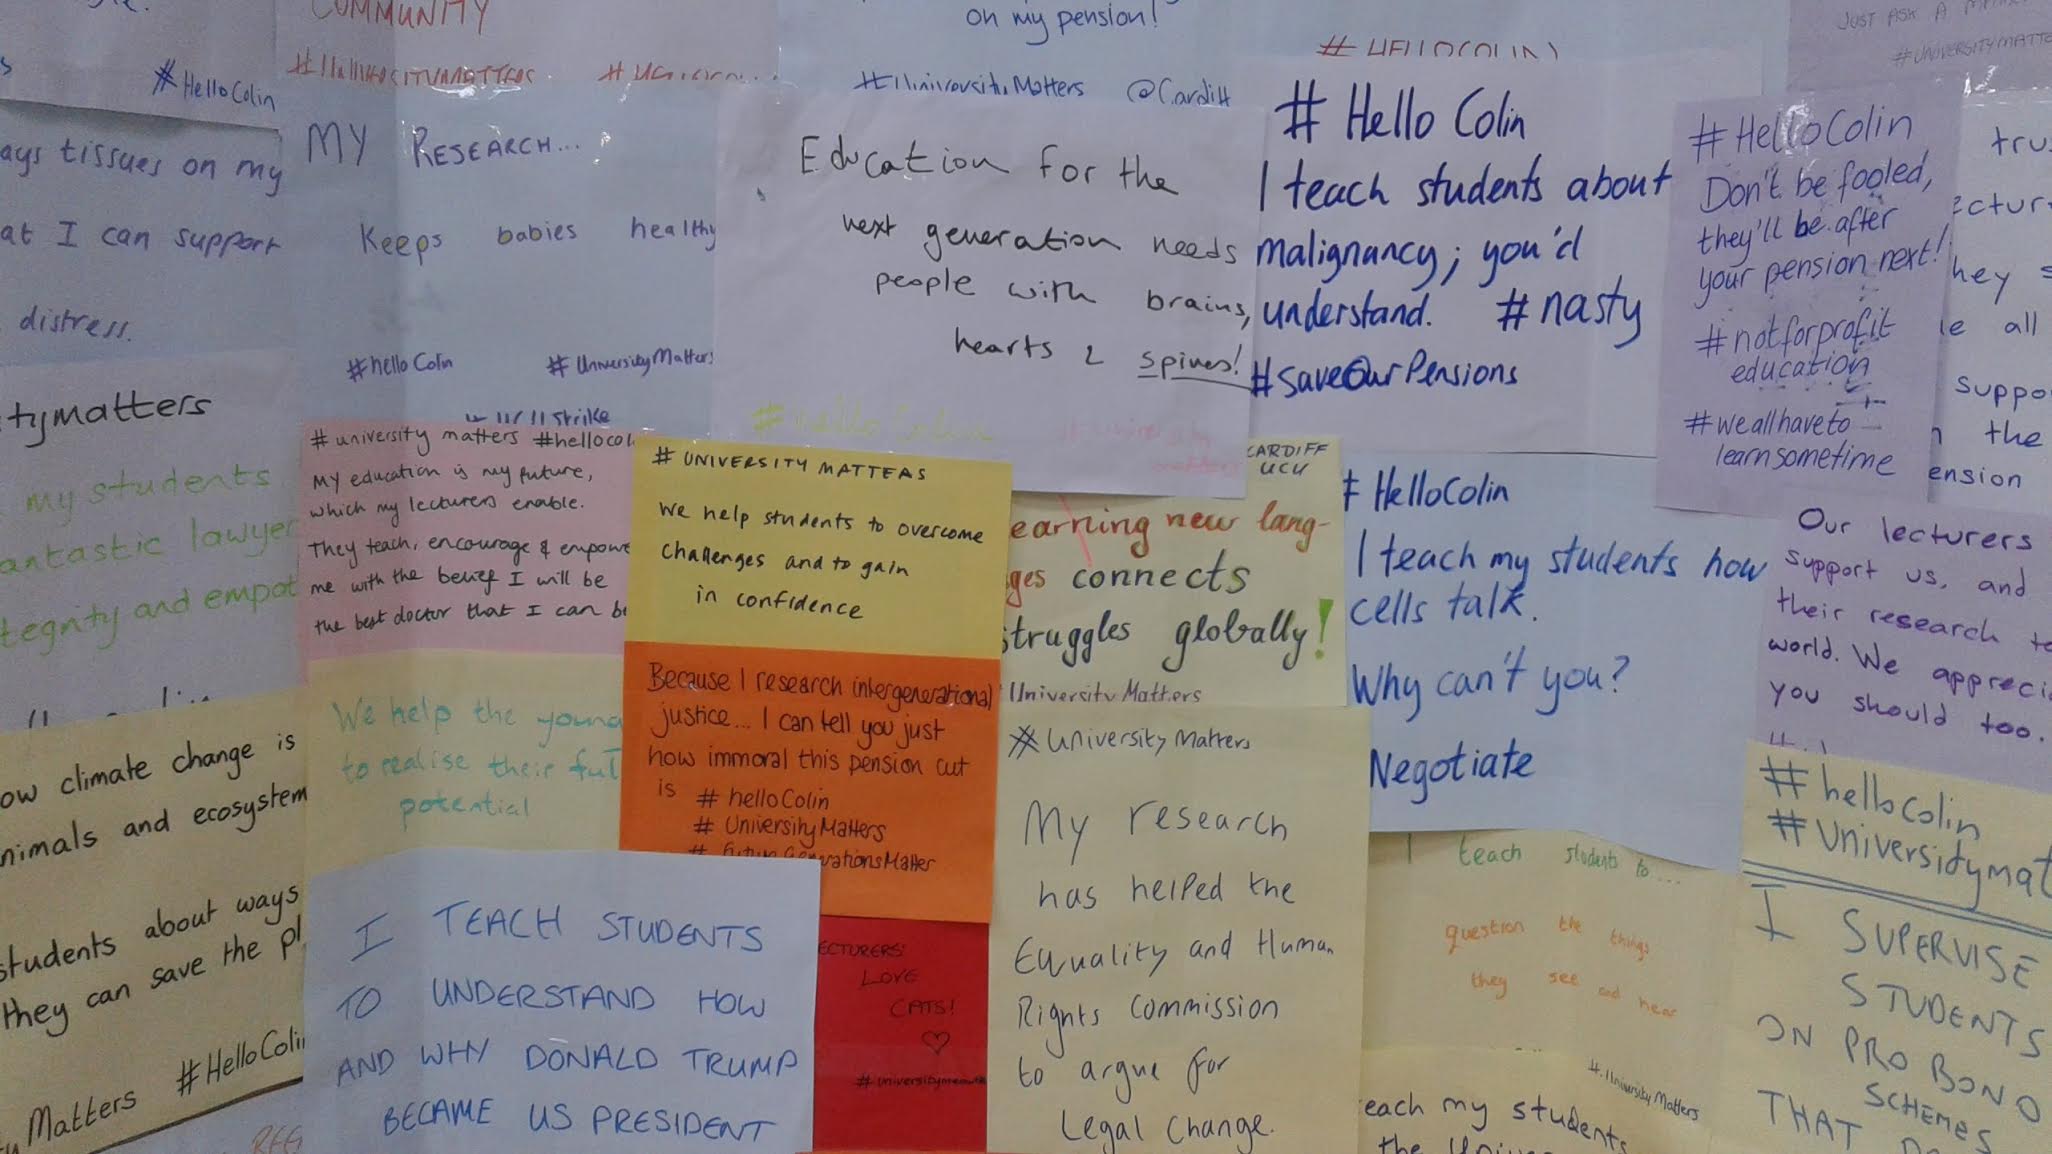 #HelloColin
ays tissues on my
at I can support
distress.
tymatters
my students
antastic lawyer
tegrity and empat
ow climate change is
nimals and ecosystem
students about ways
they can save the pl
Matters #HelloColi
COMMUNITY
#UniversityMatters
MY RESEARCH...
Keeps babies healthy
#helloColin #UniversityMatters
Strike
#university matters #hellocol
MY education is my future,
which my lecturers enable.
They teach, encourage & empowe
me with the belief I will be
the best doctor that I can be
We help the young
to realise their full
potential
I TEACH STUDENTS
TO UNDERSTAND HOW
AND WHY DONALD TRUMP
BECAME US PRESIDENT
on my pension!
#UniversityMatters @Cardiff
Education for the
next generation needs
people with brains,
hearts & spines!
#helloColin #university
matters
# UNIVERSITY MATTEAS
We help students to overcome
challenges and to gain
in confidence
Because I research intergenerational
justice... I can tell you just
how immoral this pension cut
is #helloColin
#UniversityMatters
#FutureGenerationsMatter
ECTURERS
LOVE
CATS!
CARDIFF
UCU
earning new lang-
ges connects
struggles globally!
UniversityMatters
#UniversityMatters
My research
has helped the
Equality and Human
Rights Commission
to argue for
Legal change.
#HELLOCOLIN
# Hello Colin
I teach students about
malignancy; you'd
understand. #nasty
#saveOurPensions
# HelloColin
I teach my students how
cells talk.
Why can't you?
Negotiate
I teach students to...
question the things
they see and hear
#UniversityMatters
each my students
the
JUST ASK A
#UNIVERSITYMATTE
#HelloColin
Don't be fooled,
they'll be after
your pension next!
#notforprofit
education
#weallhaveto
learnsometime
tru
ectur
hey s
le all
suppo
the
ension
Our lecturers
support us, and
their research to
world. We apprecia
you should too.
#helloColin
#Universitymat
I SUPERVISE
STUDENTS
ON PRO BONO
SCHEMES
THAT